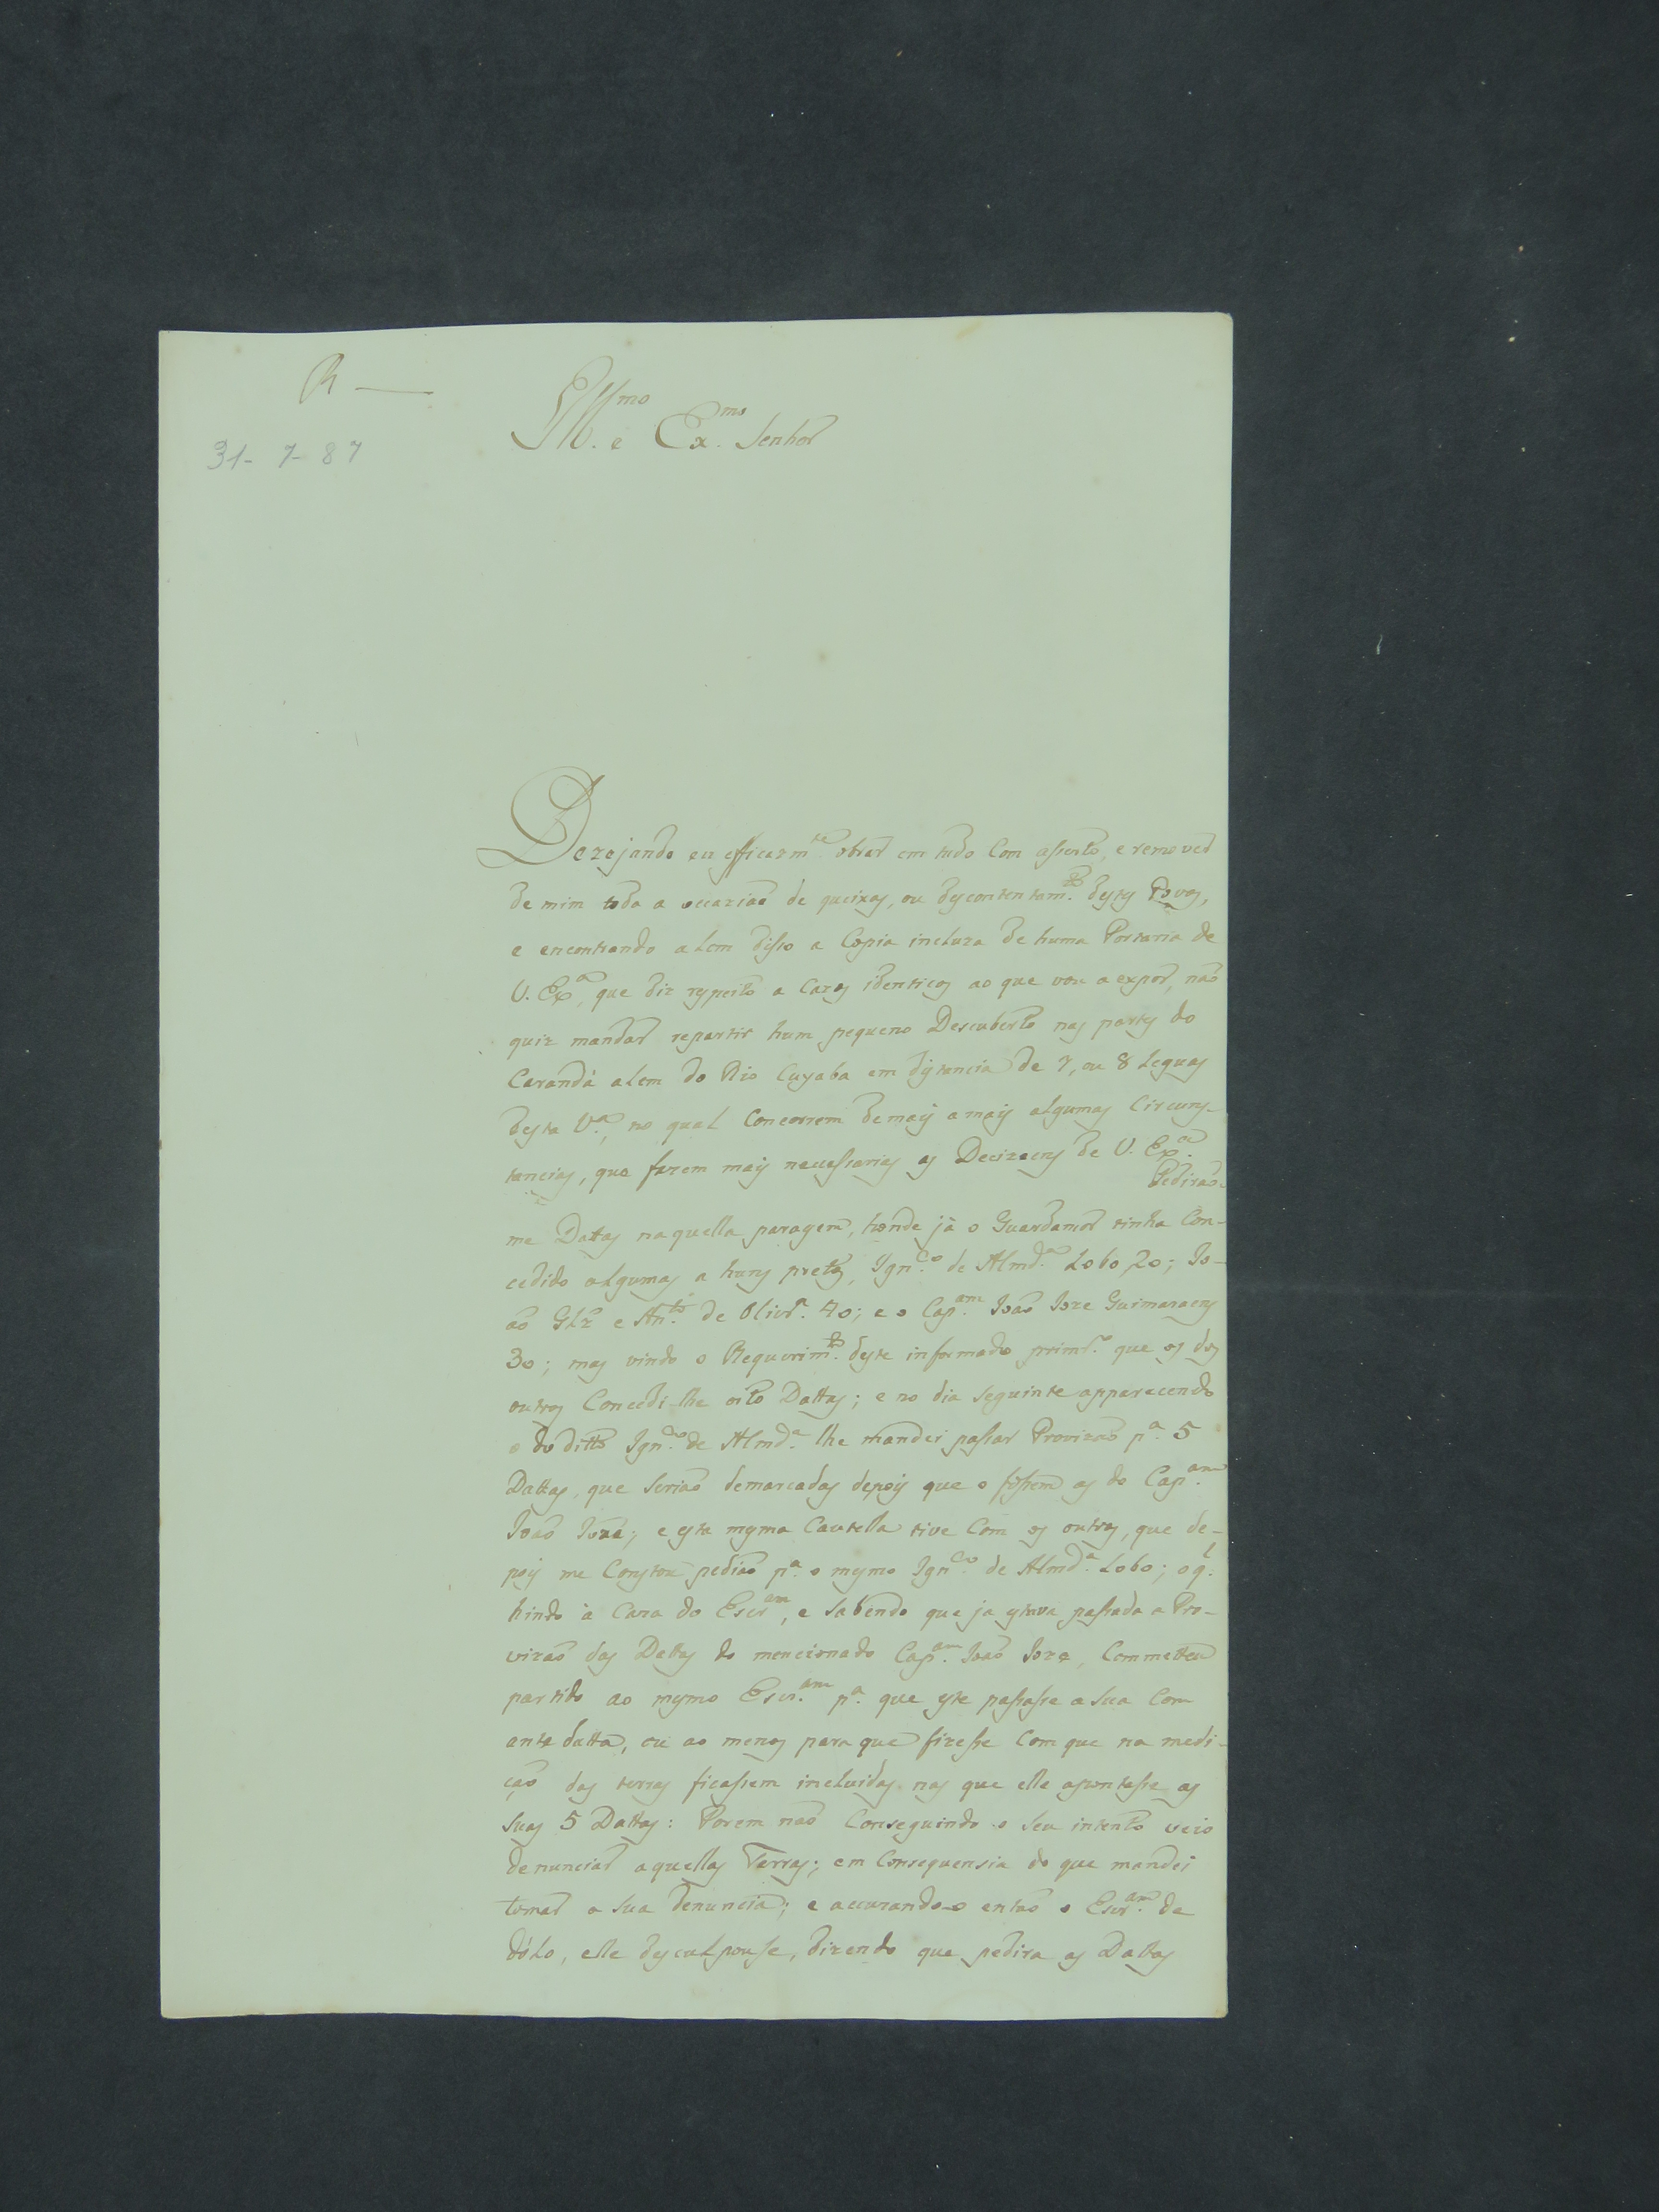 R
31-7-87
Ill.mo e Ex.mo Senhor
Dezejando eu efficazm.te obrar em tudo Com assento, e remover
de mim toda a occazião de queixas, ou descontentam.to destes Povos,
e encontrando alem disso a Copia incluza de huma Portaria de
V. Ex.a, que diz respeito a Cazos identicos ao que vou a expor, não
quiz mandar repartir hum pequeno Descuberto nas partes do
Carandá alem do Rio Cuyaba em distancia de 7, ou 8 Leguas
desta V.a, no qual Concorrem de mais a mais algumas Circuns-
tancias, que fazem mais necessarias as Decizoens de V. Ex.a
Pedirão-
me Dattas naquella paragem, honde já o Guardamor tinha Con-
cedido algumas a huns pretos, Ign.co de Almd.a Lobo 20; Jo-
ão Glz e An.to de Olivr.a 40; e o Cap.am João Joze Guimaraens
30; mas vindo o Requerim.to deste informado primr.o que os dos
outros Concedi-lhe oito Dattas; e no dia seguinte apparecendo
o do ditto Ign.co de Almd.a lhe mandei passar Provizão p.a 5
Dattas, que serião demarcadas depois que o fossem as do Cap.am
João Joze; e esta mesma Cautella tive Com os outros, que de-
pois me Constou pedião p.a o mesmo Ign.co de Almd.a Lobo; o q.l
hindo à Caza do Escr.am, e sabendo que ja estava passada a Pro-
vizão das Dattas do mencionado Cap.am João Joze, Commetteu
partido ao mesmo Escr.am p.a que este passasse a sua Com
ante datta, ou ao menos para que fizesse Com que na medi-
ção das terras ficassem incluidas nas que elle apontasse as
suas 5 Dattas: Porem não Conseguindo o seu intento veio
denunciar aquellas Terras; em Consequensia do que mandei
tomar a sua denuncia; e accuzando-o então o Escr.am de
dólo, elle desculpouse, dizendo que pedira as Dattas